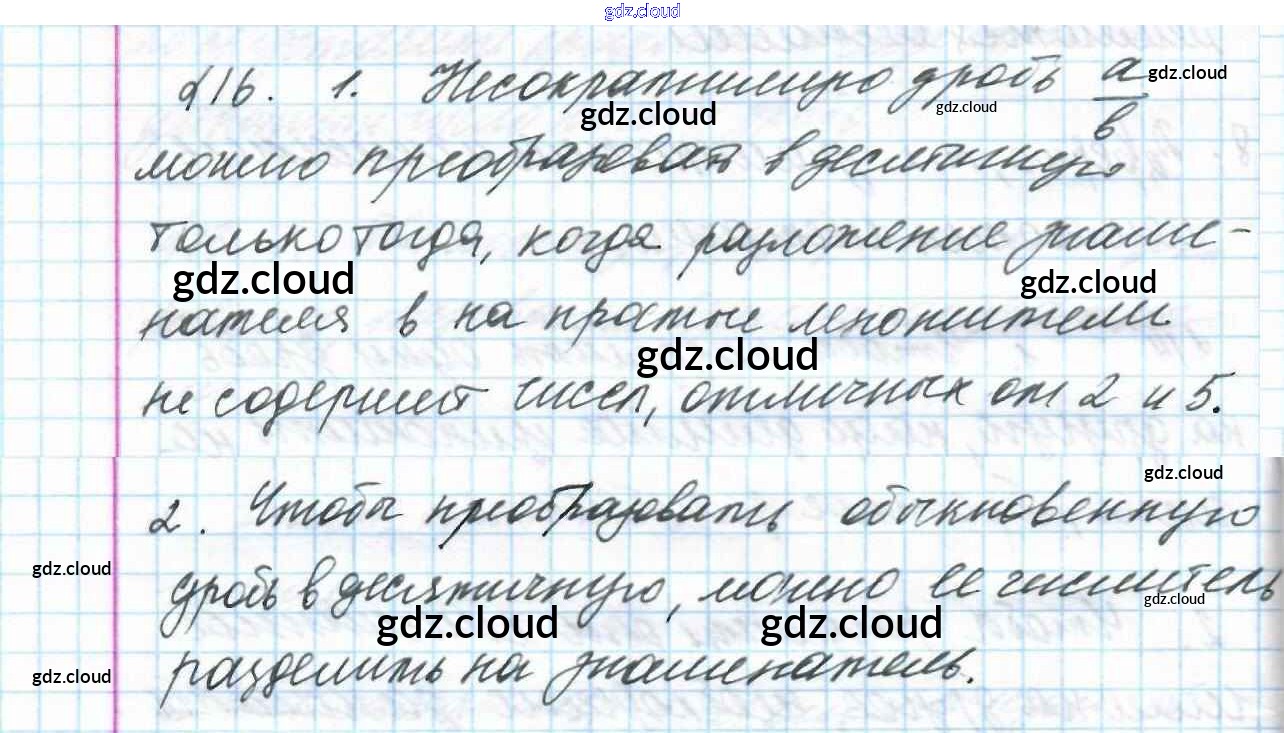 gdz.cloud
§16. 1. Несократимую дробь a/b gdz.cloud
gdz.cloud gdz.cloud
можно преобразовать в десятичную
только тогда, когда разложение знаме-
gdz.cloud gdz.cloud
нателя b на простые множители
gdz.cloud
не содержит чисел, отличных от 2 и 5.
gdz.cloud
2. Чтобы преобразовать обыкновенную
gdz.cloud
дробь в десятичную, можно ее числитель
gdz.cloud
gdz.cloud gdz.cloud
разделить на знаменатель.
gdz.cloud